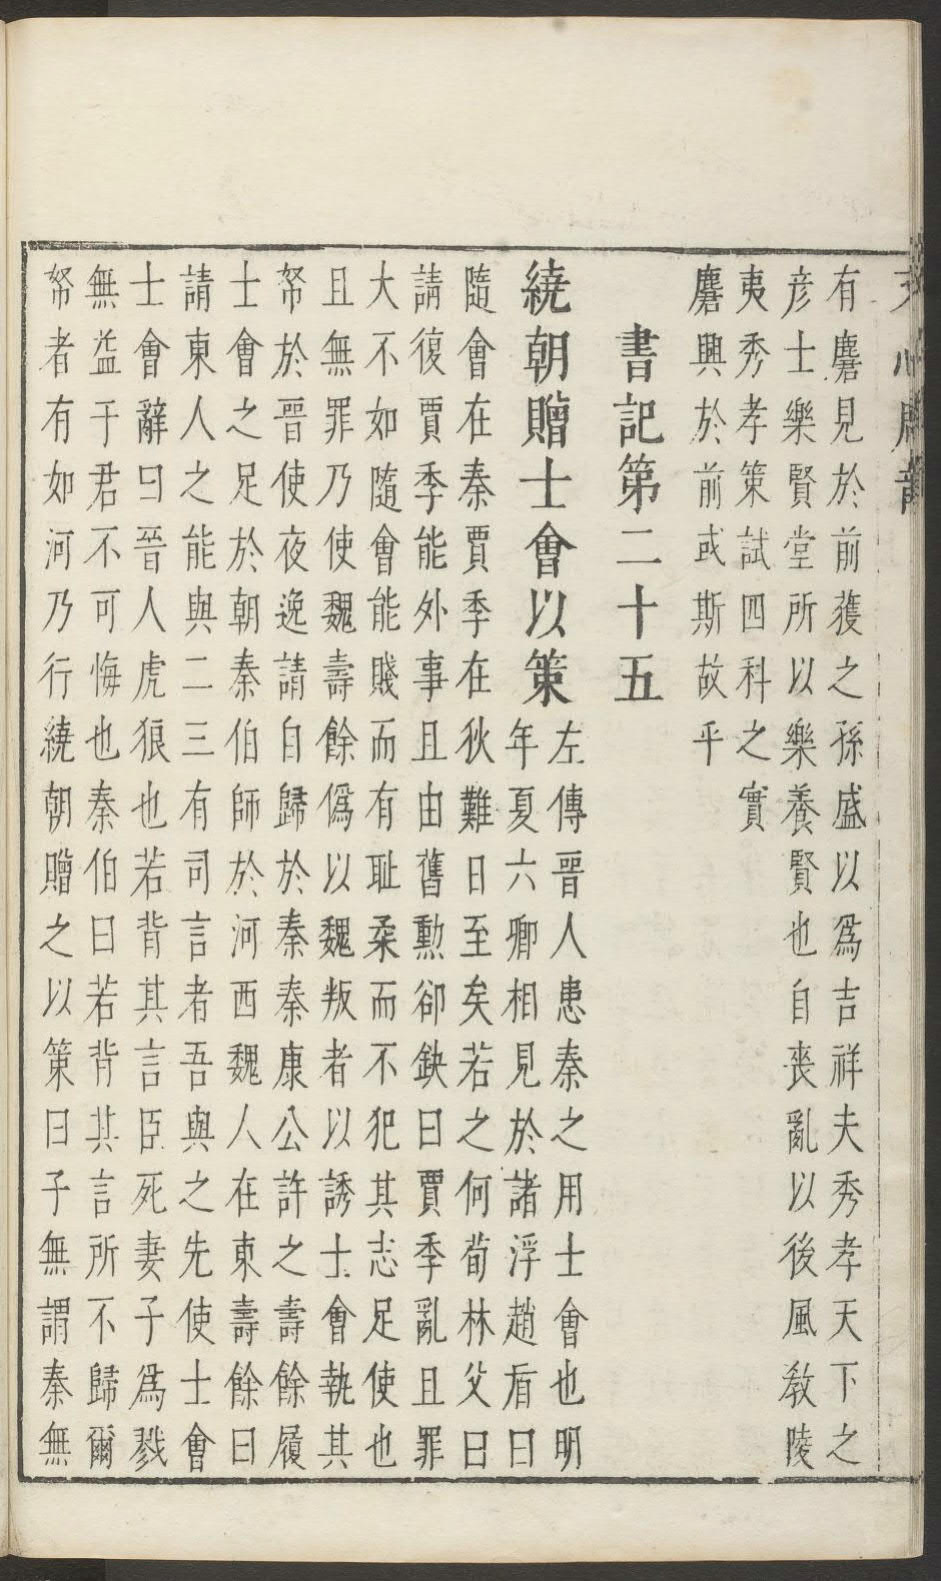 有麏見於前獲之孫盛以爲吉祥夫秀孝天下之
彦士樂賢堂所以樂養賢也自丧亂以後風敎陵
夷秀孝策試四科之實
麏興於前或斯故乎
書記第二十五
繞朝贈士會以策
左傳晉人患秦之用士會也明
年夏六卿相見於諸浮趙盾曰
隨會在秦賈季在狄難日至矣若之何荀林父曰
請復賈季能外事且由舊勲郤鈌曰賈季亂且罪
大不如隨會能賤而有耻柔而不犯其志足使也
且無罪乃使魏壽餘僞以魏叛者以誘士會執其
帑於晉使夜逸請自歸於秦秦康公許之壽餘履
士會之足於朝秦伯師於河西魏人在東壽餘曰
請東人之能與二三有司言者吾與之先使士會
士會辭曰晉人虎狼也若背其言臣死妻子爲戮
無益于君不可悔也秦伯曰若背其言所不歸爾
帑者有如河乃行繞朝贈之以策曰子無謂秦無